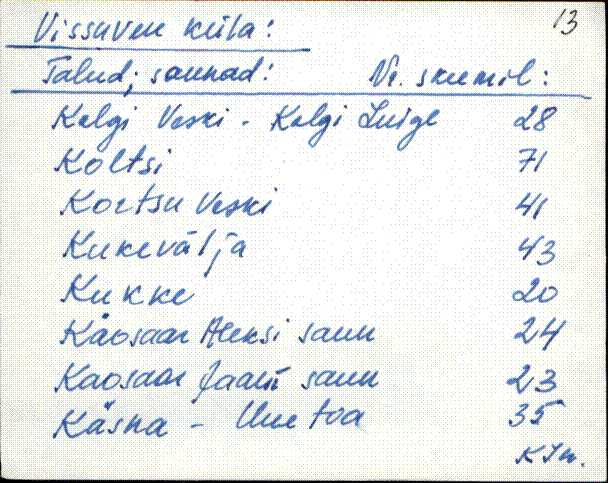 13
Vissuvere küla:
Talud; saunad: Nr. skeemil:
Kelgi Veski - Kelgi Luige 28
Koltsi 71
Kortsu Veski 41
Kukevälja 43
Kukke 20
Käosaar Aleksi saun 24
Kaosaar Jaani saun 23
Käsna - Uuetoa 35